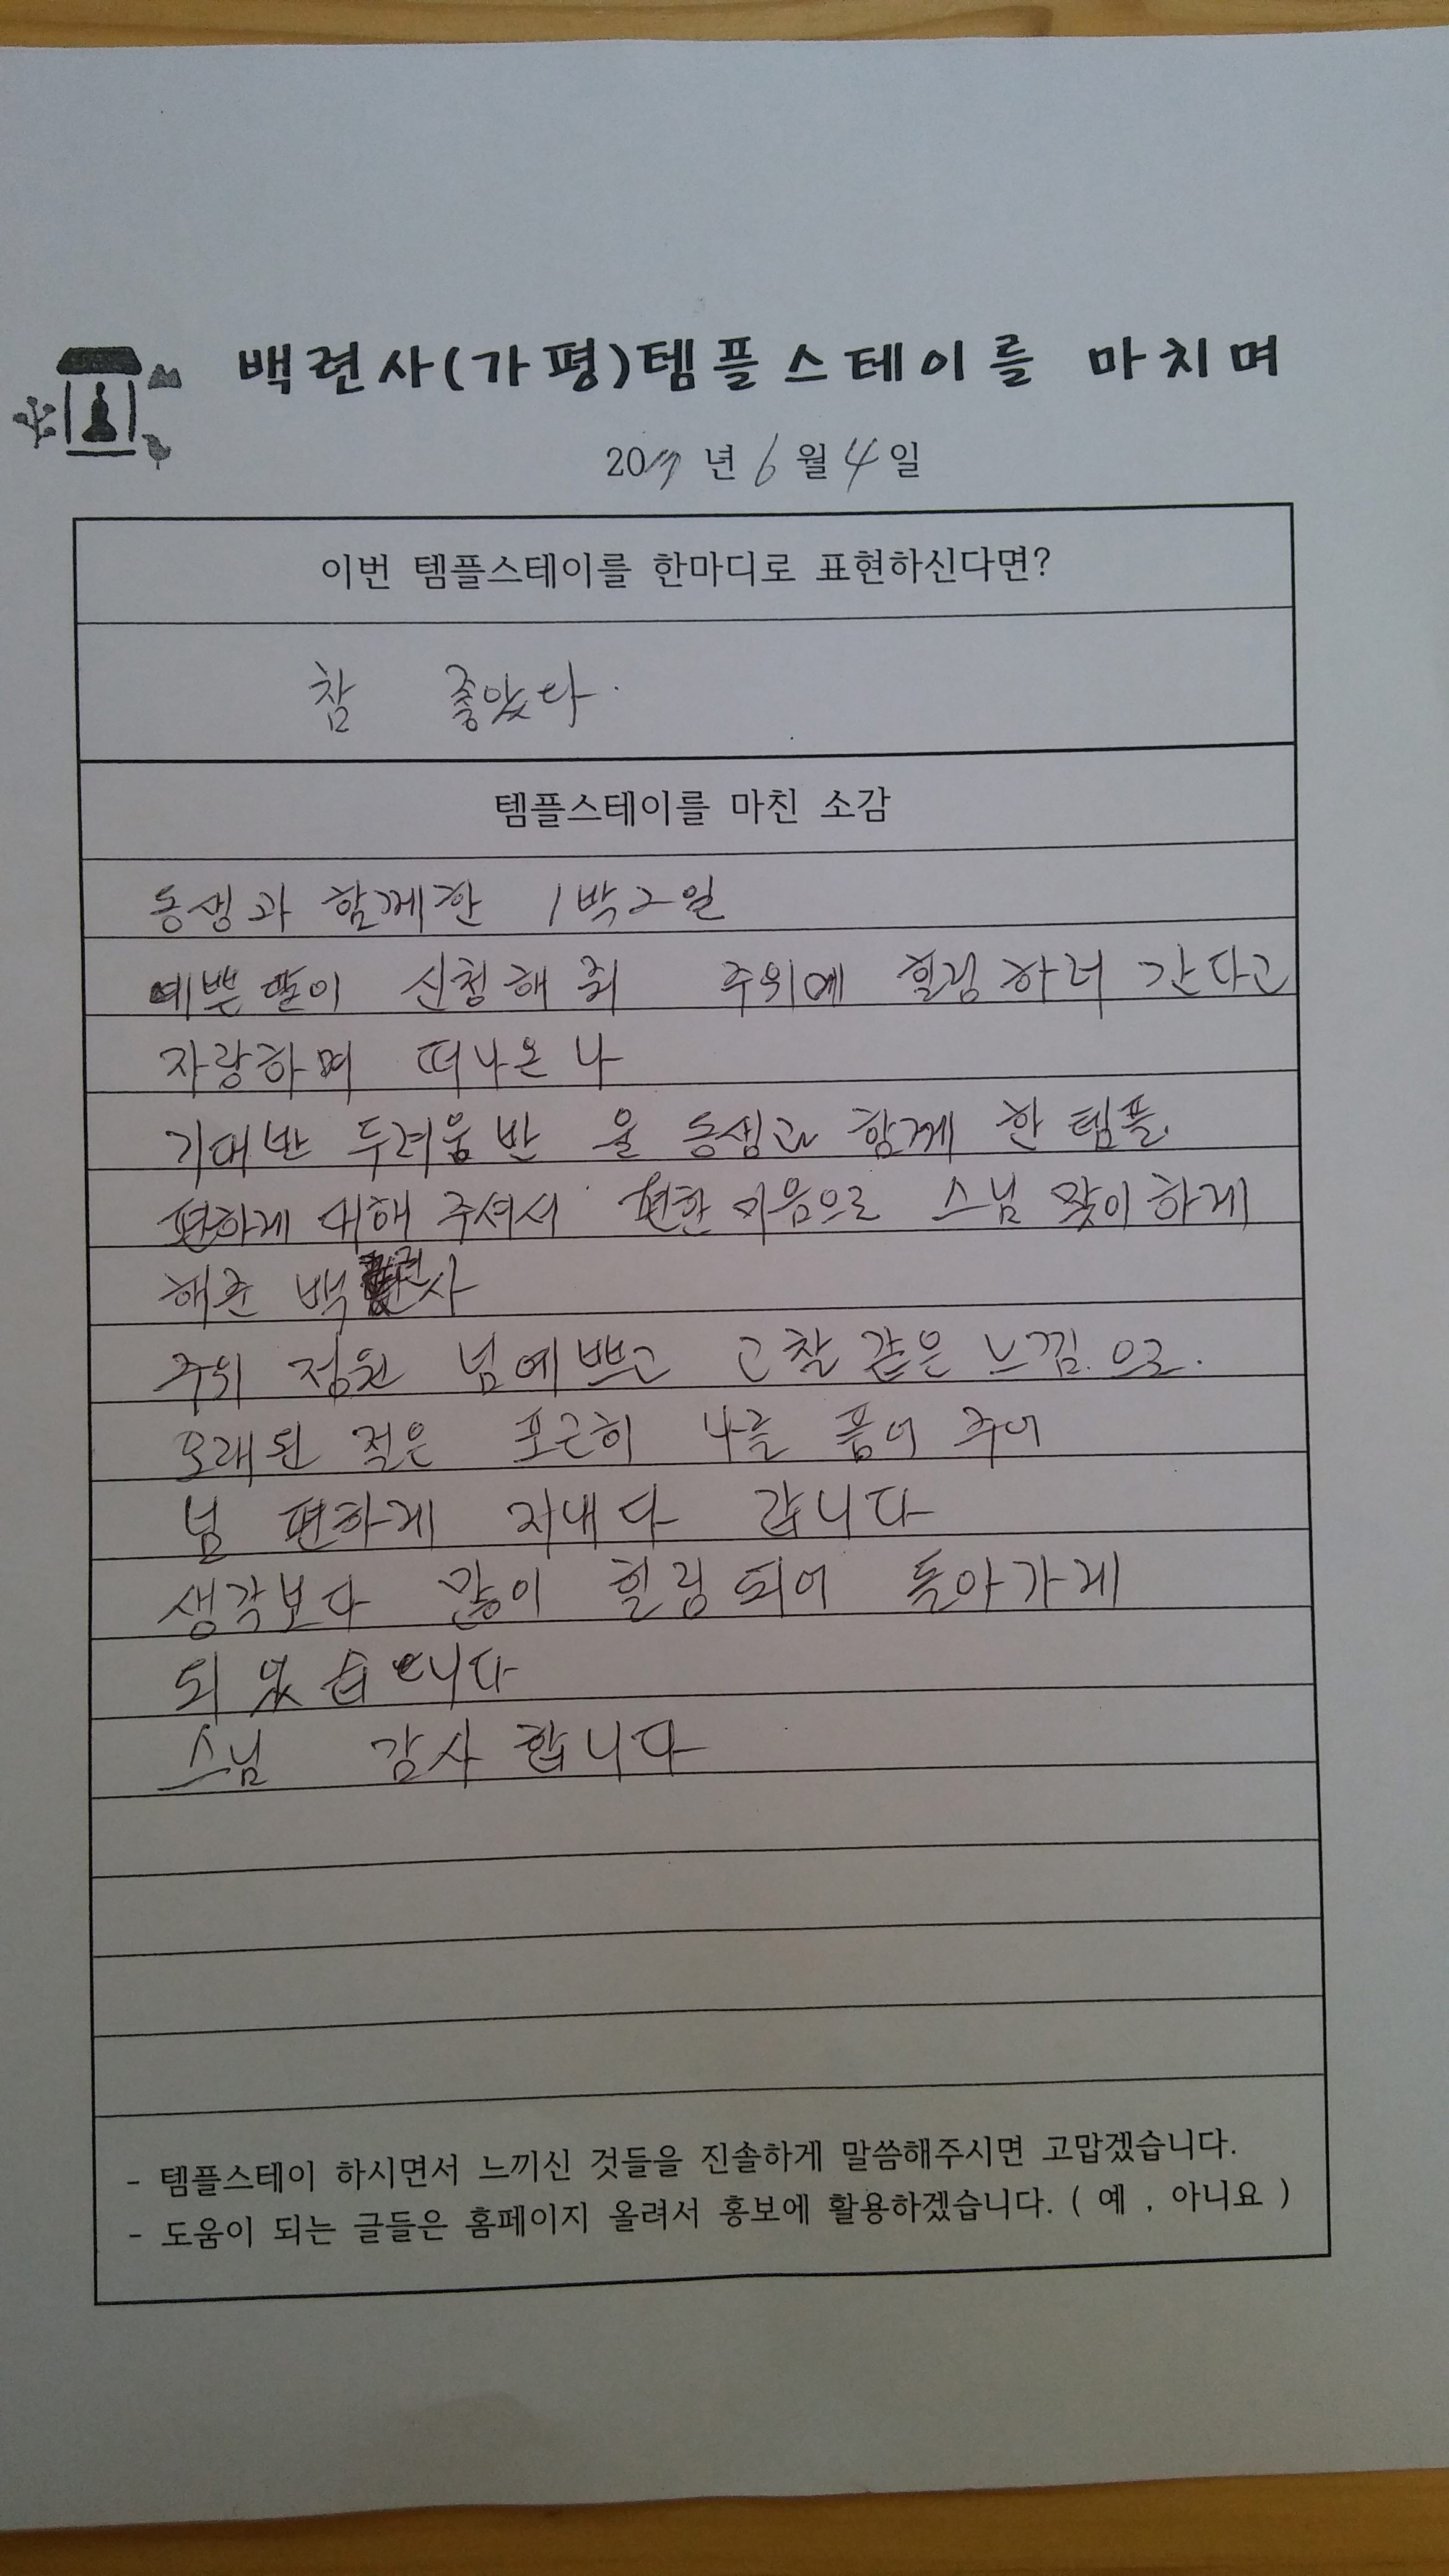 백련사(가평)템플스테이를 마치며
2017년 6월 4일
이번 템플스테이를 한마디로 표현하신다면?
참 좋았다.
템플스테이를 마친 소감
동생과 함께한 1박2일
예쁜 딸이 신청해 줘 주위에 힐링하러 간다고
자랑하며 떠나온 나
기대반 두려움반 울 동생과 함께 한 템플.
편하게 대해 주셔서 편한 마음으로 스님 맞이하게
해준 백련사
주위 정원 넘예쁘고 고찰 같은 느낌.으로.
오래된 절은 포근히 나를 품어 주어
넘 편하게 지내다 갑니다
생각보다 많이 힐링되어 돌아가게
되었습니다
스님 감사합니다
- 템플스테이 하시면서 느끼신 것들을 진솔하게 말씀해주시면 고맙겠습니다.
- 도움이 되는 글들은 홈페이지 올려서 홍보에 활용하겠습니다. ( 예 , 아니요 )